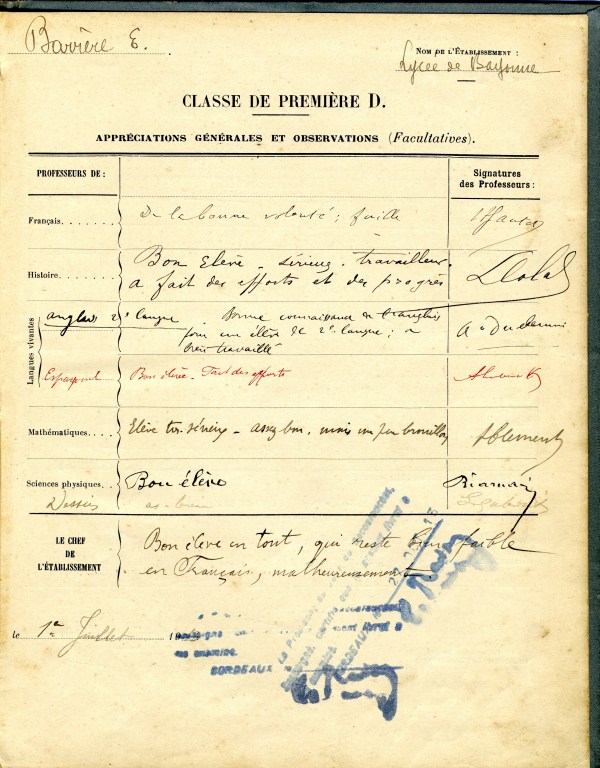 Barrière E.
NOM DE L'ÉTABLISSEMENT :
Lycée de Bayonne
CLASSE DE PREMIÈRE D.
APPRÉCIATIONS GÉNÉRALES ET OBSERVATIONS (Facultatives).
PROFESSEURS DE :
Signatures des Professeurs :
Français
De la bonne volonté ; faible
Histoire
Bon élève - sérieux - travailleur.
a fait des efforts et des progrès
Langues vivantes
anglais 2e langue Bonne connaissance de l'anglais
pour un élève de 2e langue ; a
bien travaillé
Espagnol
Bon élève - Fait des efforts
Mathématiques
Elève très sérieux - assez bon, mais un peu brouillon
Clément
Sciences physiques
Bon élève
Dessin
assez bien
LE CHEF
DE
L'ÉTABLISSEMENT
Bon élève en tout, qui reste bien faible
en Français, malheureusement
le 1er Juillet 19
BORDEAUX
BORDEAUX